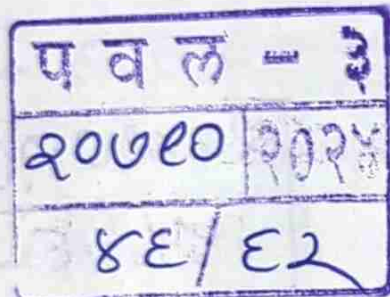 प व ल - ३
२०७९० २०२४
४६/६२